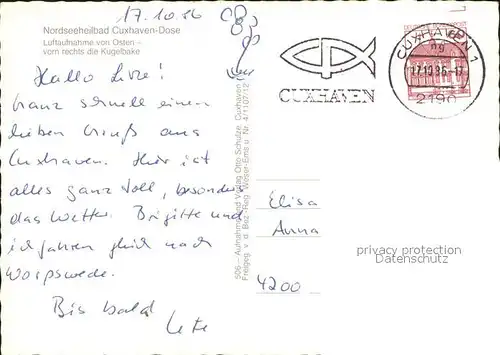 17.10.86
Nordseeheilbad Cuxhaven-Dose
Luftaufnahme von Osten –
vorn rechts die Kugelbake
Hallo
Ganz schnell einen
lieben Gruß aus
Cuxhaven. Hier ist
alles ganz toll, besonders
das Wetter. Brigitte und
ich fahren gleich nach
Worpswede.
Bis bald
506 – Aufnahme und Verlag Otto Schulze, Cuxhaven
Freigeg. v. d. Bez.-Reg. Weser-Ems u. Nr. 4/1107/12
CUXHAVEN
CUXHAVEN 1
17.10.86-17
2190
Elisa
Anna
4200
privacy protection
Datenschutz